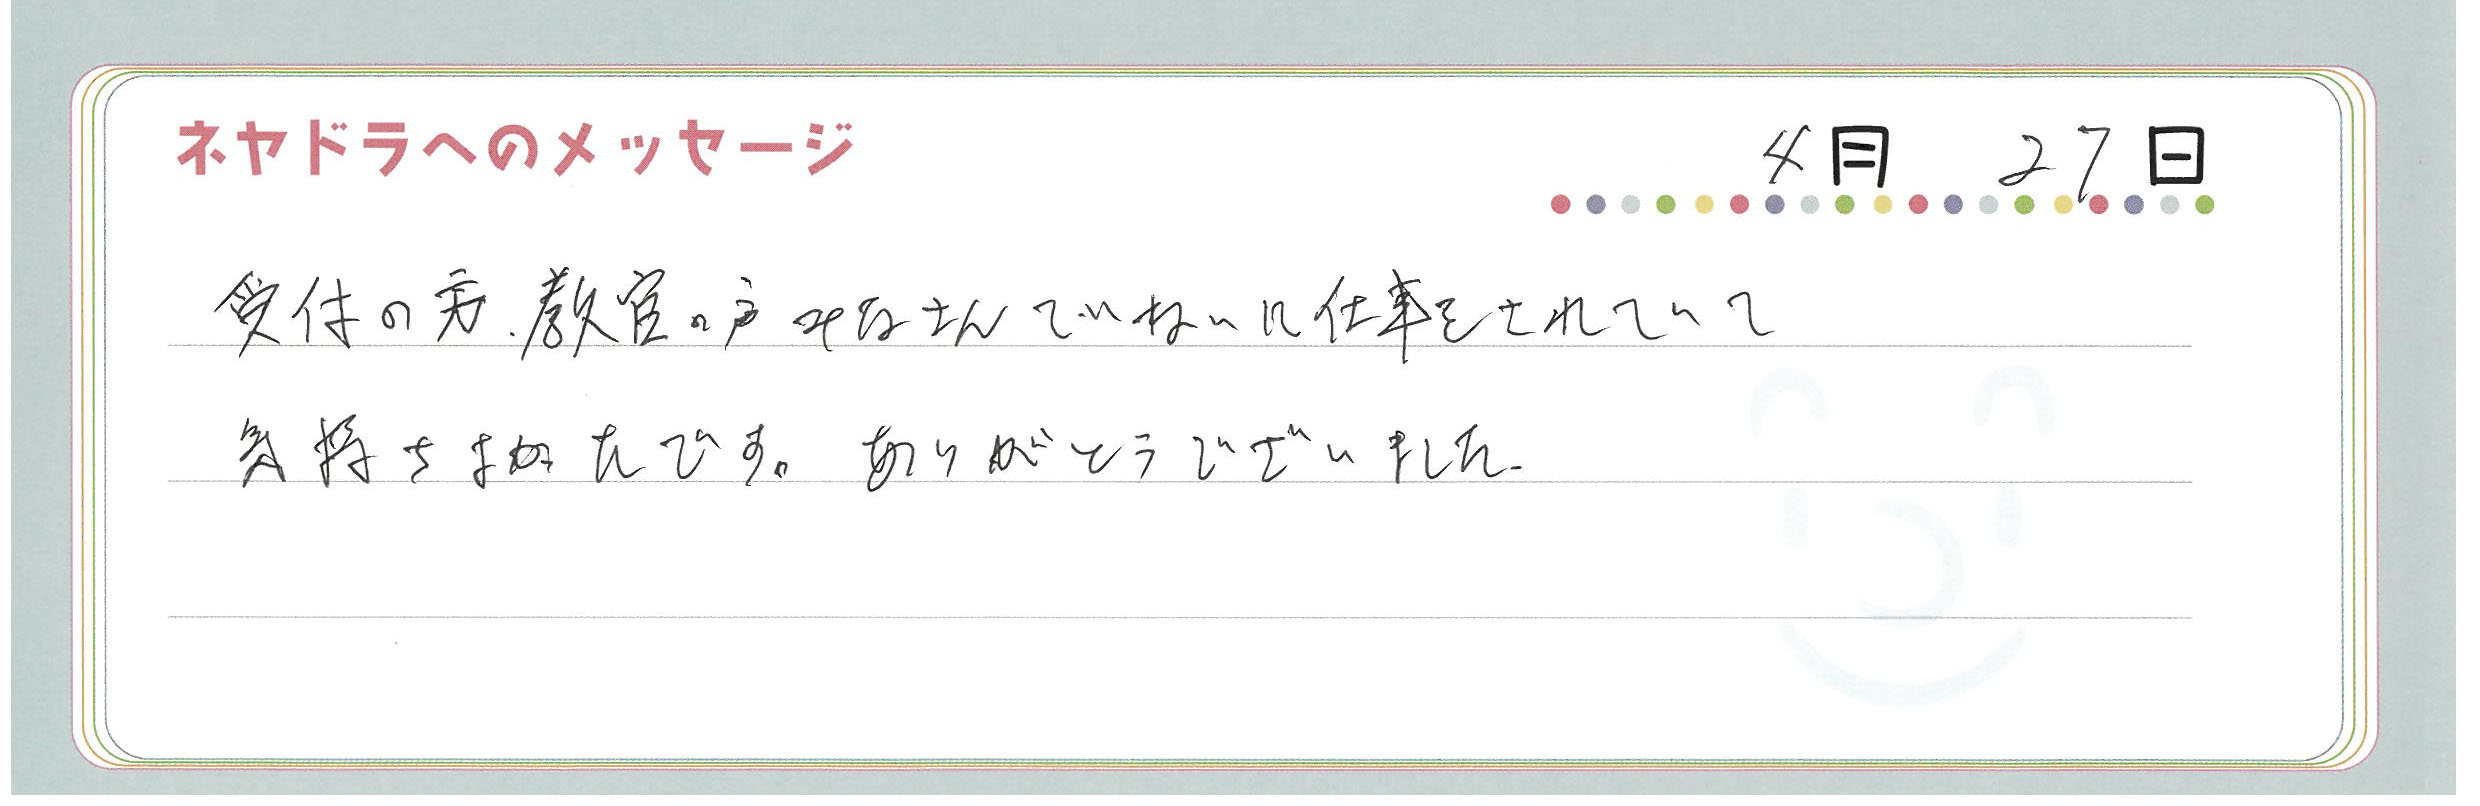 ネヤドラへのメッセージ
4月 27日
受付の方、教官の方みなさんていねいに仕事をされていて
気持ちよかたです。ありがとうございました.